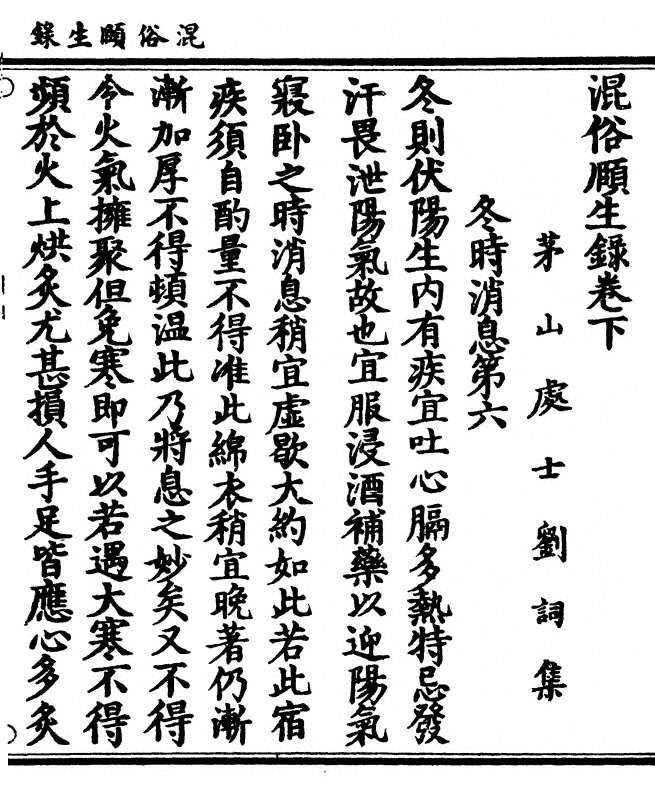 混俗頤生錄
混俗頤生錄卷下
茅山處士劉詞集
冬時消息第六
冬則伏陽生內有疾宜吐心膈多熱特忌發
汗畏泄陽氣故也宜服浸酒補藥以迎陽氣
寢卧之時消息稍宜虛歇大約如此若此宿
疾須自酌量不得准此綿衣稍宜晚著仍漸
漸加厚不得頓温此乃將息之妙矣又不得
令火氣擁聚但免寒即可以若遇大寒不得
頻於火上烘炙尤甚損人手足皆應心多炙